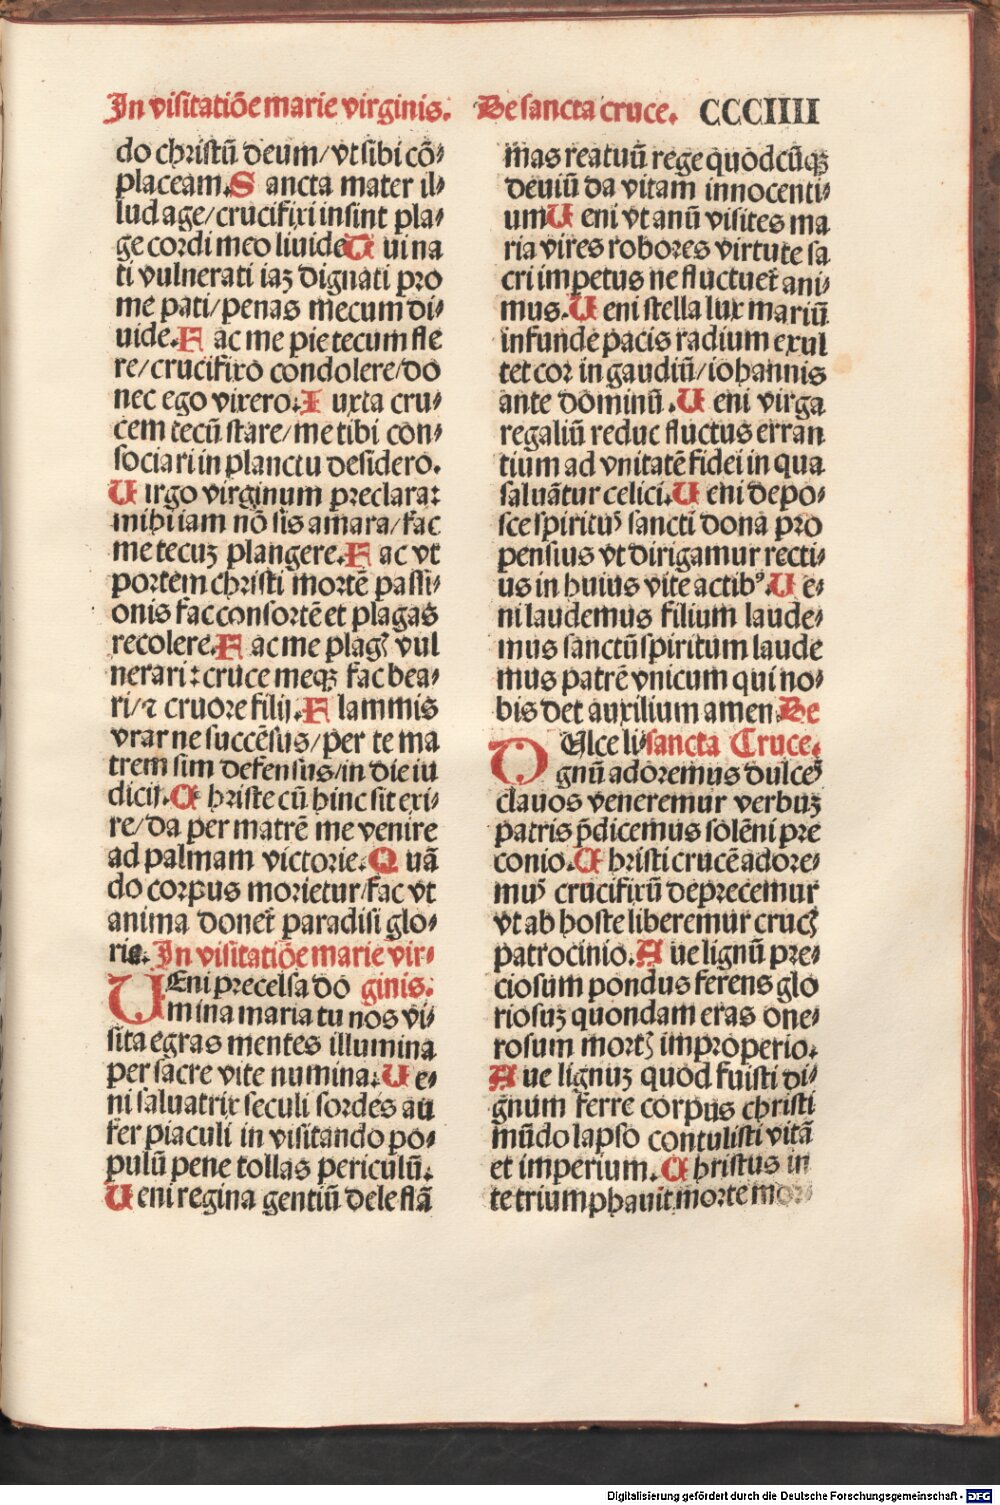 In visitatiōe marie virginis. De sancta cruce. CCCIIII
do christū deum/vt sibi cō⸗
placeam. Sancta mater il⸗
lud age/crucifixi insint pla⸗
ge cordi meo liuide Tui na
ti vulnerati iaꝫ dignati pro
me pati/penas mecum di⸗
uide. Fac me pie tecum fle
re/crucifixo condolere/do
nec ego vixero. Iuxta cru⸗
cem tecū stare/me tibi con⸗
sociari in planctu desidero.
Uirgo virginum preclara:
mihi iam nō sis amara/fac
me tecuꝫ plangere. Fac vt
portem christi mortē passi⸗
onis fac consortē et plagas
recolere. Fac me plagꝭ vul
nerari: cruce meqꝫ fac bea⸗
ri/⁊ cruore filij. Flammis
vrar ne succēsus/per te ma
trem sim defensus/in die iu
dicij. Christe cū hinc sit exi⸗
re/da per matrē me venire
ad palmam victorie. Quā
do corpus morietur/fac vt
anima donet᷑ paradisi glo⸗
rie. In visitatiōe marie vir⸗
UEni precelsa do ginis.
mina maria tu nos vi⸗
sita egras mentes illumina
per sacre vite numina. Ue⸗
ni saluatrix seculi sordes au
fer piaculi in visitando po⸗
pulū pene tollas periculū.
Ueni regina gentiū dele flā
mas reatuū rege quodcūqꝫ
deuiū da vitam innocenti⸗
um Ueni vt anū visites ma
ria vires robores virtute sa
cri impetus ne fluctuet᷑ ani⸗
mus. Ueni stella lux mariū
infunde pacis radium exul
tet cor in gaudiū/iohannis
ante dominū. Ueni virga
regaliū reduc fluctus erran
tium ad vnitatē fidei in qua
saluātur celici. Ueni depo⸗
sce spiritus sancti dona pro
pensius vt dirigamur recti⸗
us in huius vite actibꝰ. Ue⸗
ni laudemus filium laude⸗
mus sanctū spiritum laude
mus patrē vnicum qui no⸗
bis det auxilium amen De
DUlce li⸗ sancta Cruce.
gnū adoremus dulces
clauos veneremur verbuꝫ
patris p̄dicemus solēni pre
conio. Christi crucē adore⸗
mus crucifixū deprecemur
vt ab hoste liberemur crucꝭ
patrocinio. Aue lignū pre⸗
ciosum pondus ferens glo
riosuꝫ quondam eras one⸗
rosum mortꝭ improperio.
Aue lignuꝫ quod fuisti di⸗
gnum ferre corpus christi
mūdo lapso contulisti vitā
et imperium. Christus in
te triumphauit morte mor⸗
Digitalisierung gefördert durch die Deutsche Forschungsgemeinschaft - DFG